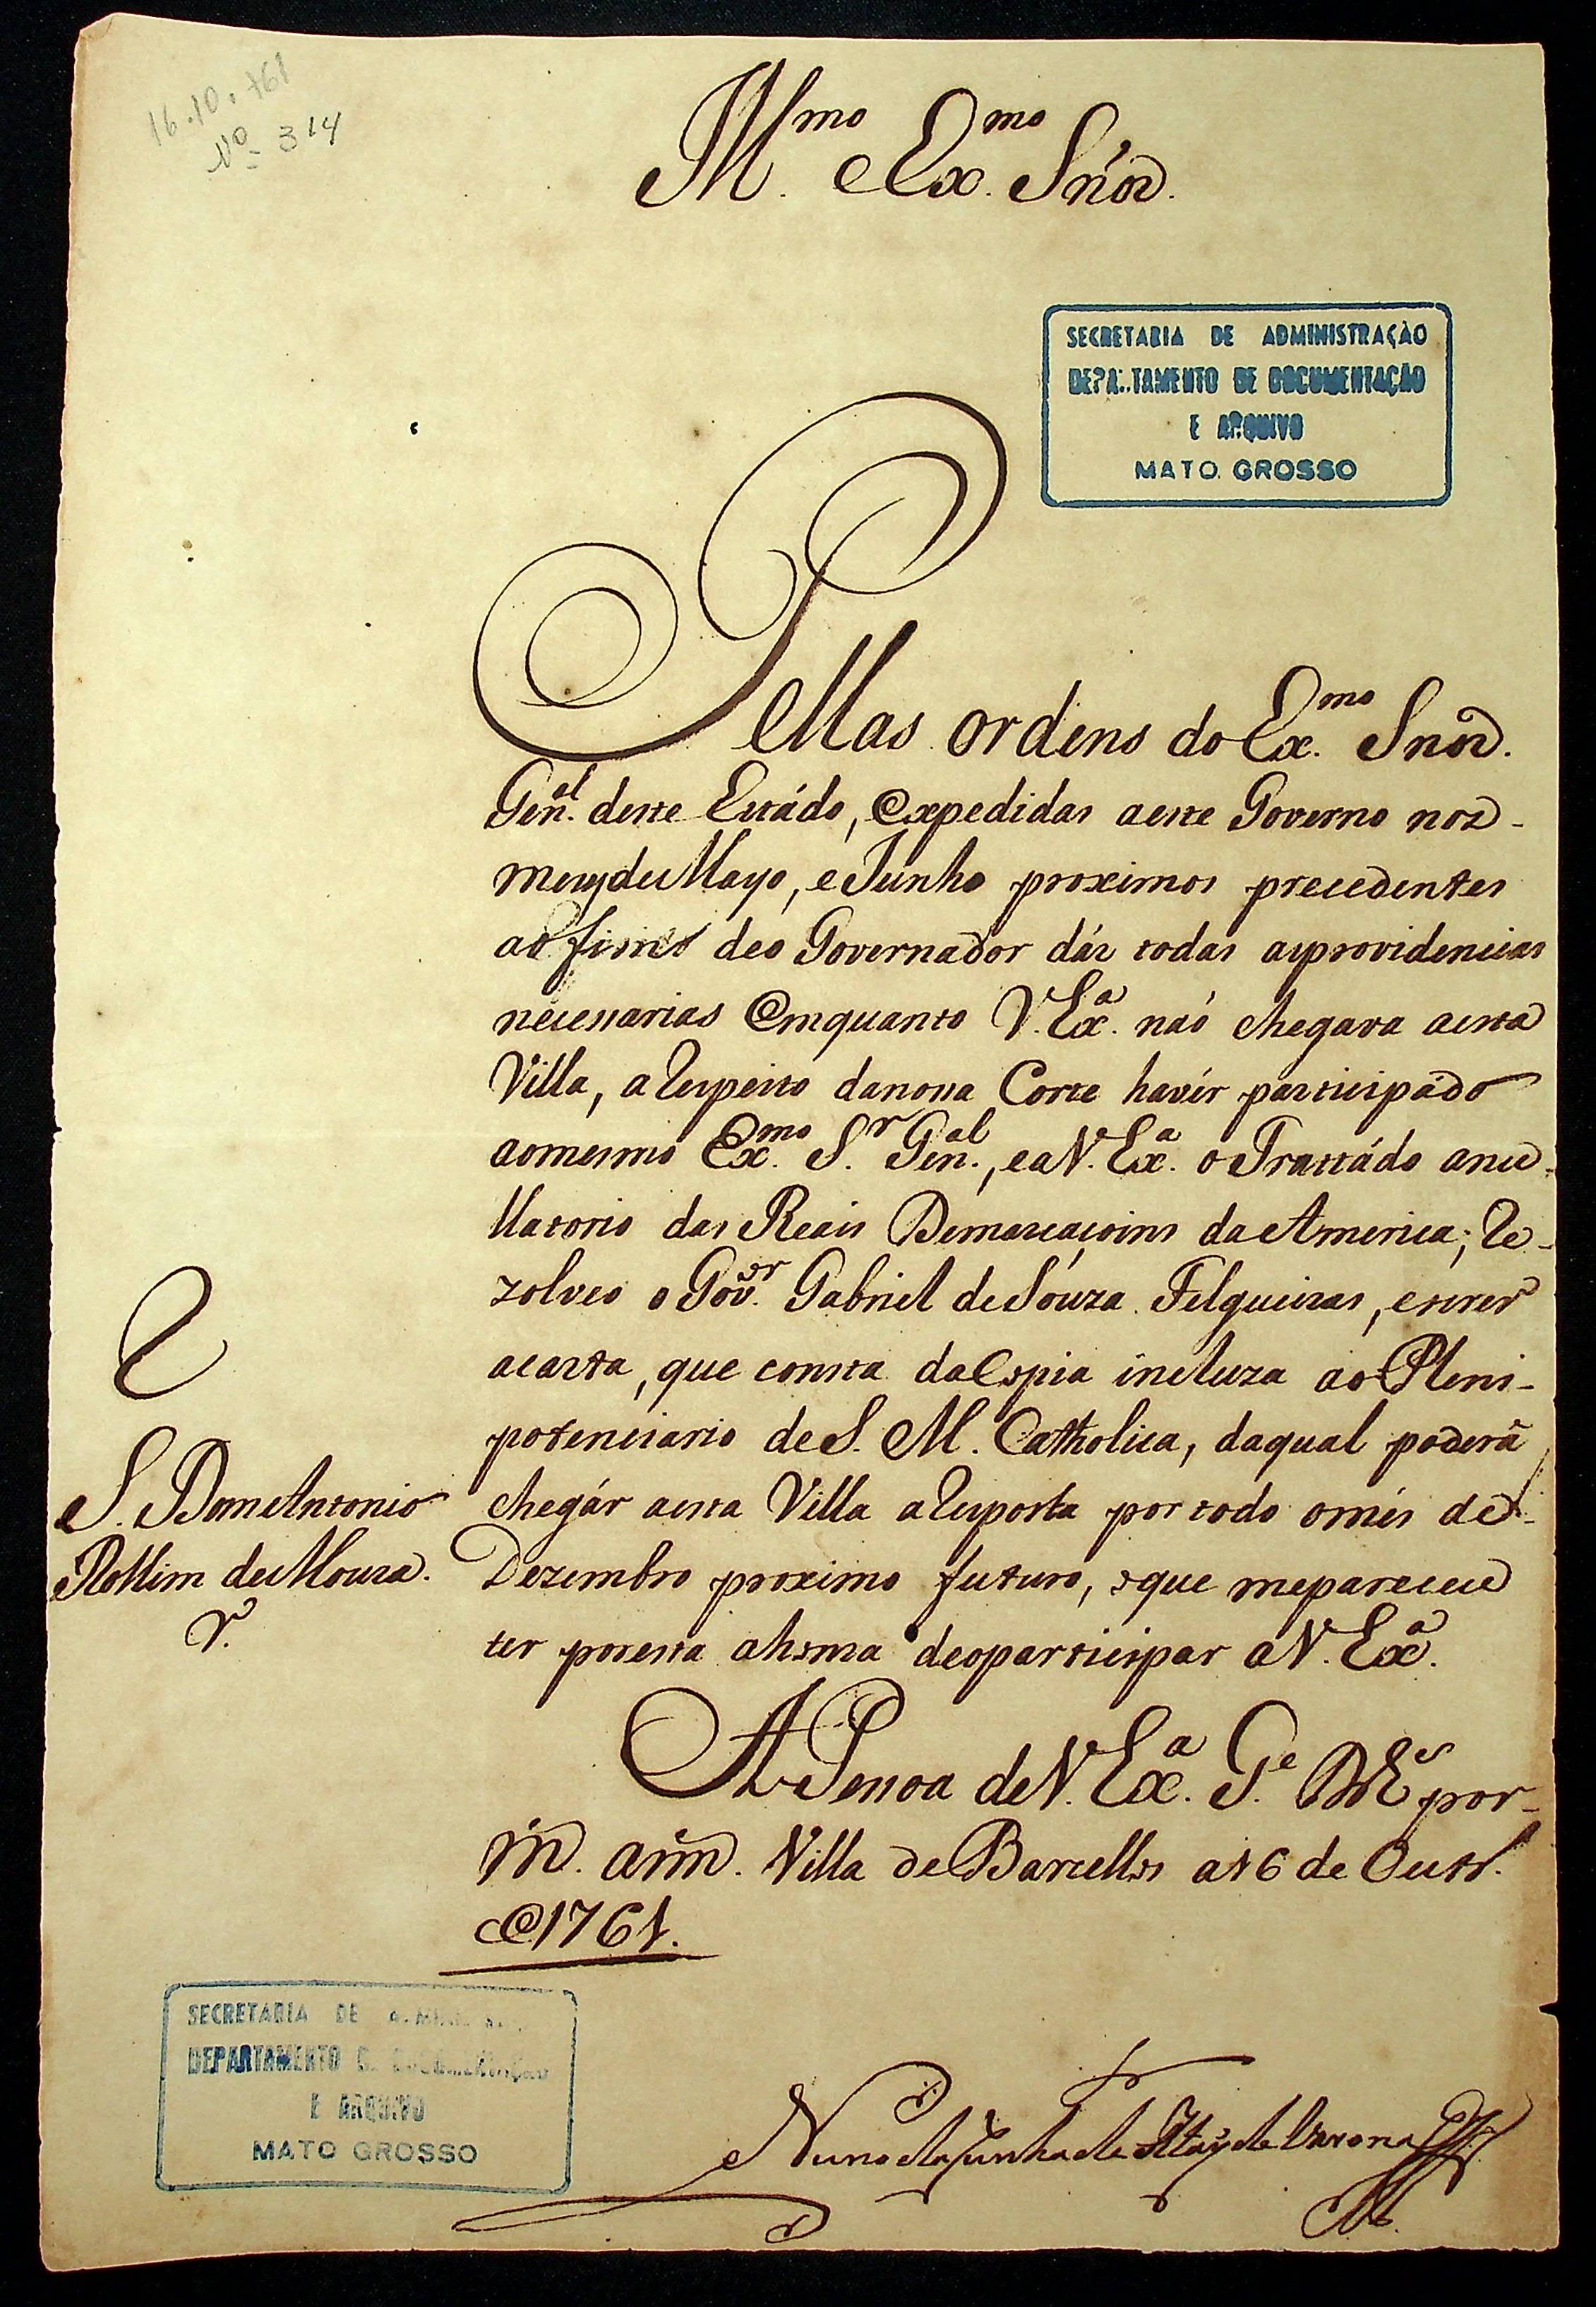 16.10.761
Nº 314
Illmo Exmo Snor.
SECRETARIA DE ADMINISTRAÇÃO
DEPARTAMENTO DE DOCUMENTAÇÃO
E ARQUIVO
MATO GROSSO
Pellas ordens do Exmo. Snor.
Genal. deste Estádo, expedidas aeste Governo nos
mezes de Mayo, e Junho proximos precedentes
deo Governador dár todas asprovidencias
necessarias emquanto V. Exa. naó chegava aesta
Villa, a respeito danossa Corte havér participado
aomesmo Exmo. Sr. Genal., e a V. Exa. o Trattádo anu-
llatorio das Reais Demarcaçoins da America; re-
zolveo o Govor. Gabriel de Souza Felgueiras, escrever
acarta, que consta da Copia incluza ao Pleni-
potenciario de S. M. Catholica, daqual poderá
chegár aesta Villa a resposta por todo omés de
Dezembro proximo futuro, oque mepareceu
ter poresta ahonra deoparticipar a V. Exa.
A Pessoa de V. Exa. Ge. Ds por
m. ann. Villa de Barcellos a 16 de Outr.
de 1761.
S. Dom Antonio
Rollim de Moura.
SECRETARIA DE ADMINISTRAÇÃO
DEPARTAMENTO DE DOCUMENTAÇÃO
E ARQUIVO
MATO GROSSO
Nuno da Cunha de Atayde Varona